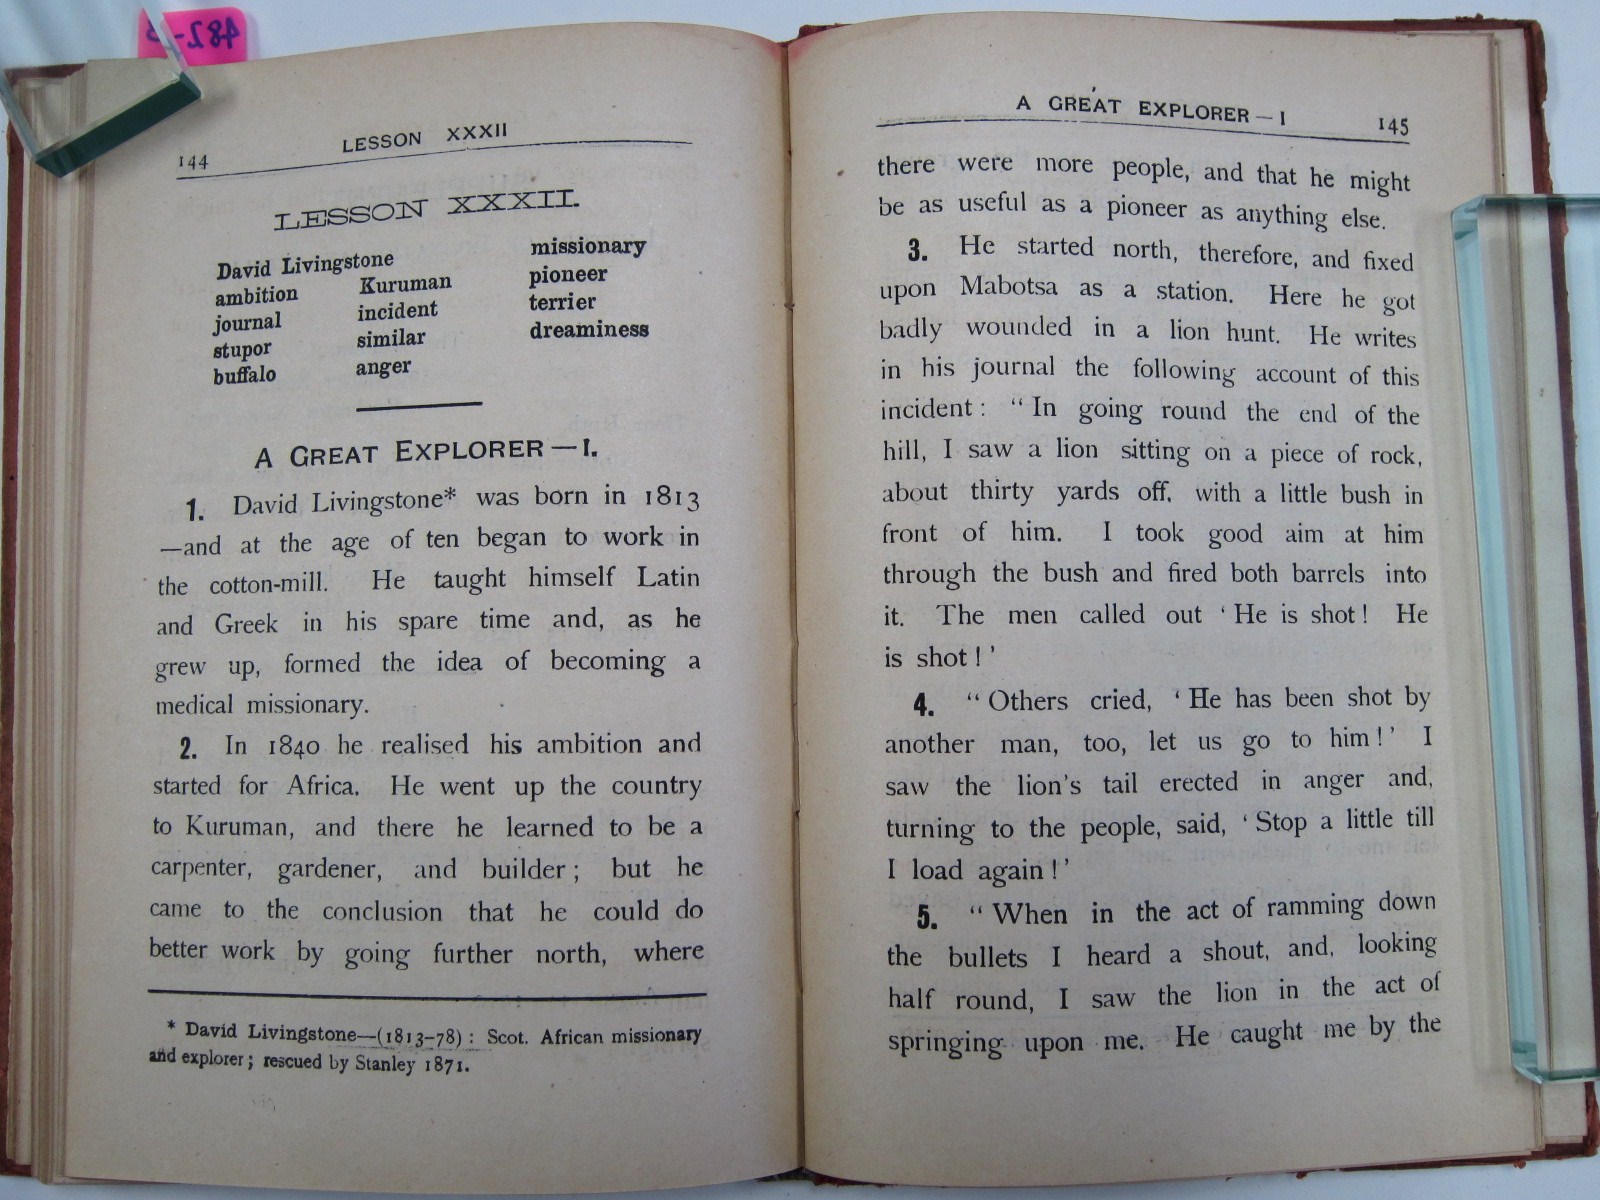 144
LESSON XXXII
LESSON XXXII.
David Livingstone
missionary
ambition
Kuruman
pioneer
journal
incident
terrier
stupor
similar
dreaminess
buffalo
anger
A GREAT EXPLORER—I.
1. David Livingstone* was born in 1813
—and at the age of ten began to work in
the cotton-mill. He taught himself Latin
and Greek in his spare time and, as he
grew up, formed the idea of becoming a
medical missionary.
2. In 1840 he realised his ambition and
started for Africa. He went up the country
to Kuruman, and there he learned to be a
carpenter, gardener, and builder; but he
came to the conclusion that he could do
better work by going further north, where
* David Livingstone—(1813–78): Scot. African missionary
and explorer; rescued by Stanley 1871.
A GREAT EXPLORER—I
145
there were more people, and that he might
be as useful as a pioneer as anything else.
3. He started north, therefore, and fixed
upon Mabotsa as a station. Here he got
badly wounded in a lion hunt. He writes
in his journal the following account of this
incident: “In going round the end of the
hill, I saw a lion sitting on a piece of rock,
about thirty yards off, with a little bush in
front of him. I took good aim at him
through the bush and fired both barrels into
it. The men called out ‘He is shot! He
is shot!’
4. “Others cried, ‘He has been shot by
another man, too, let us go to him!’ I
saw the lion's tail erected in anger and,
turning to the people, said, ‘Stop a little till
I load again!’
5. “When in the act of ramming down
the bullets I heard a shout, and, looking
half round, I saw the lion in the act of
springing upon me. He caught me by the